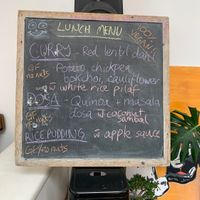 LUNCH MENU
100% VEGAN!
CURRY - Red lentil dahl
GF no nuts
Potato, chickpea,
bokchoi, cauliflower
w white rice pilaf
DOSA - Quinoa + masala
GF no nuts
dosa coconut
sambal
RICE PUDDING apple sauce
GF/no nuts